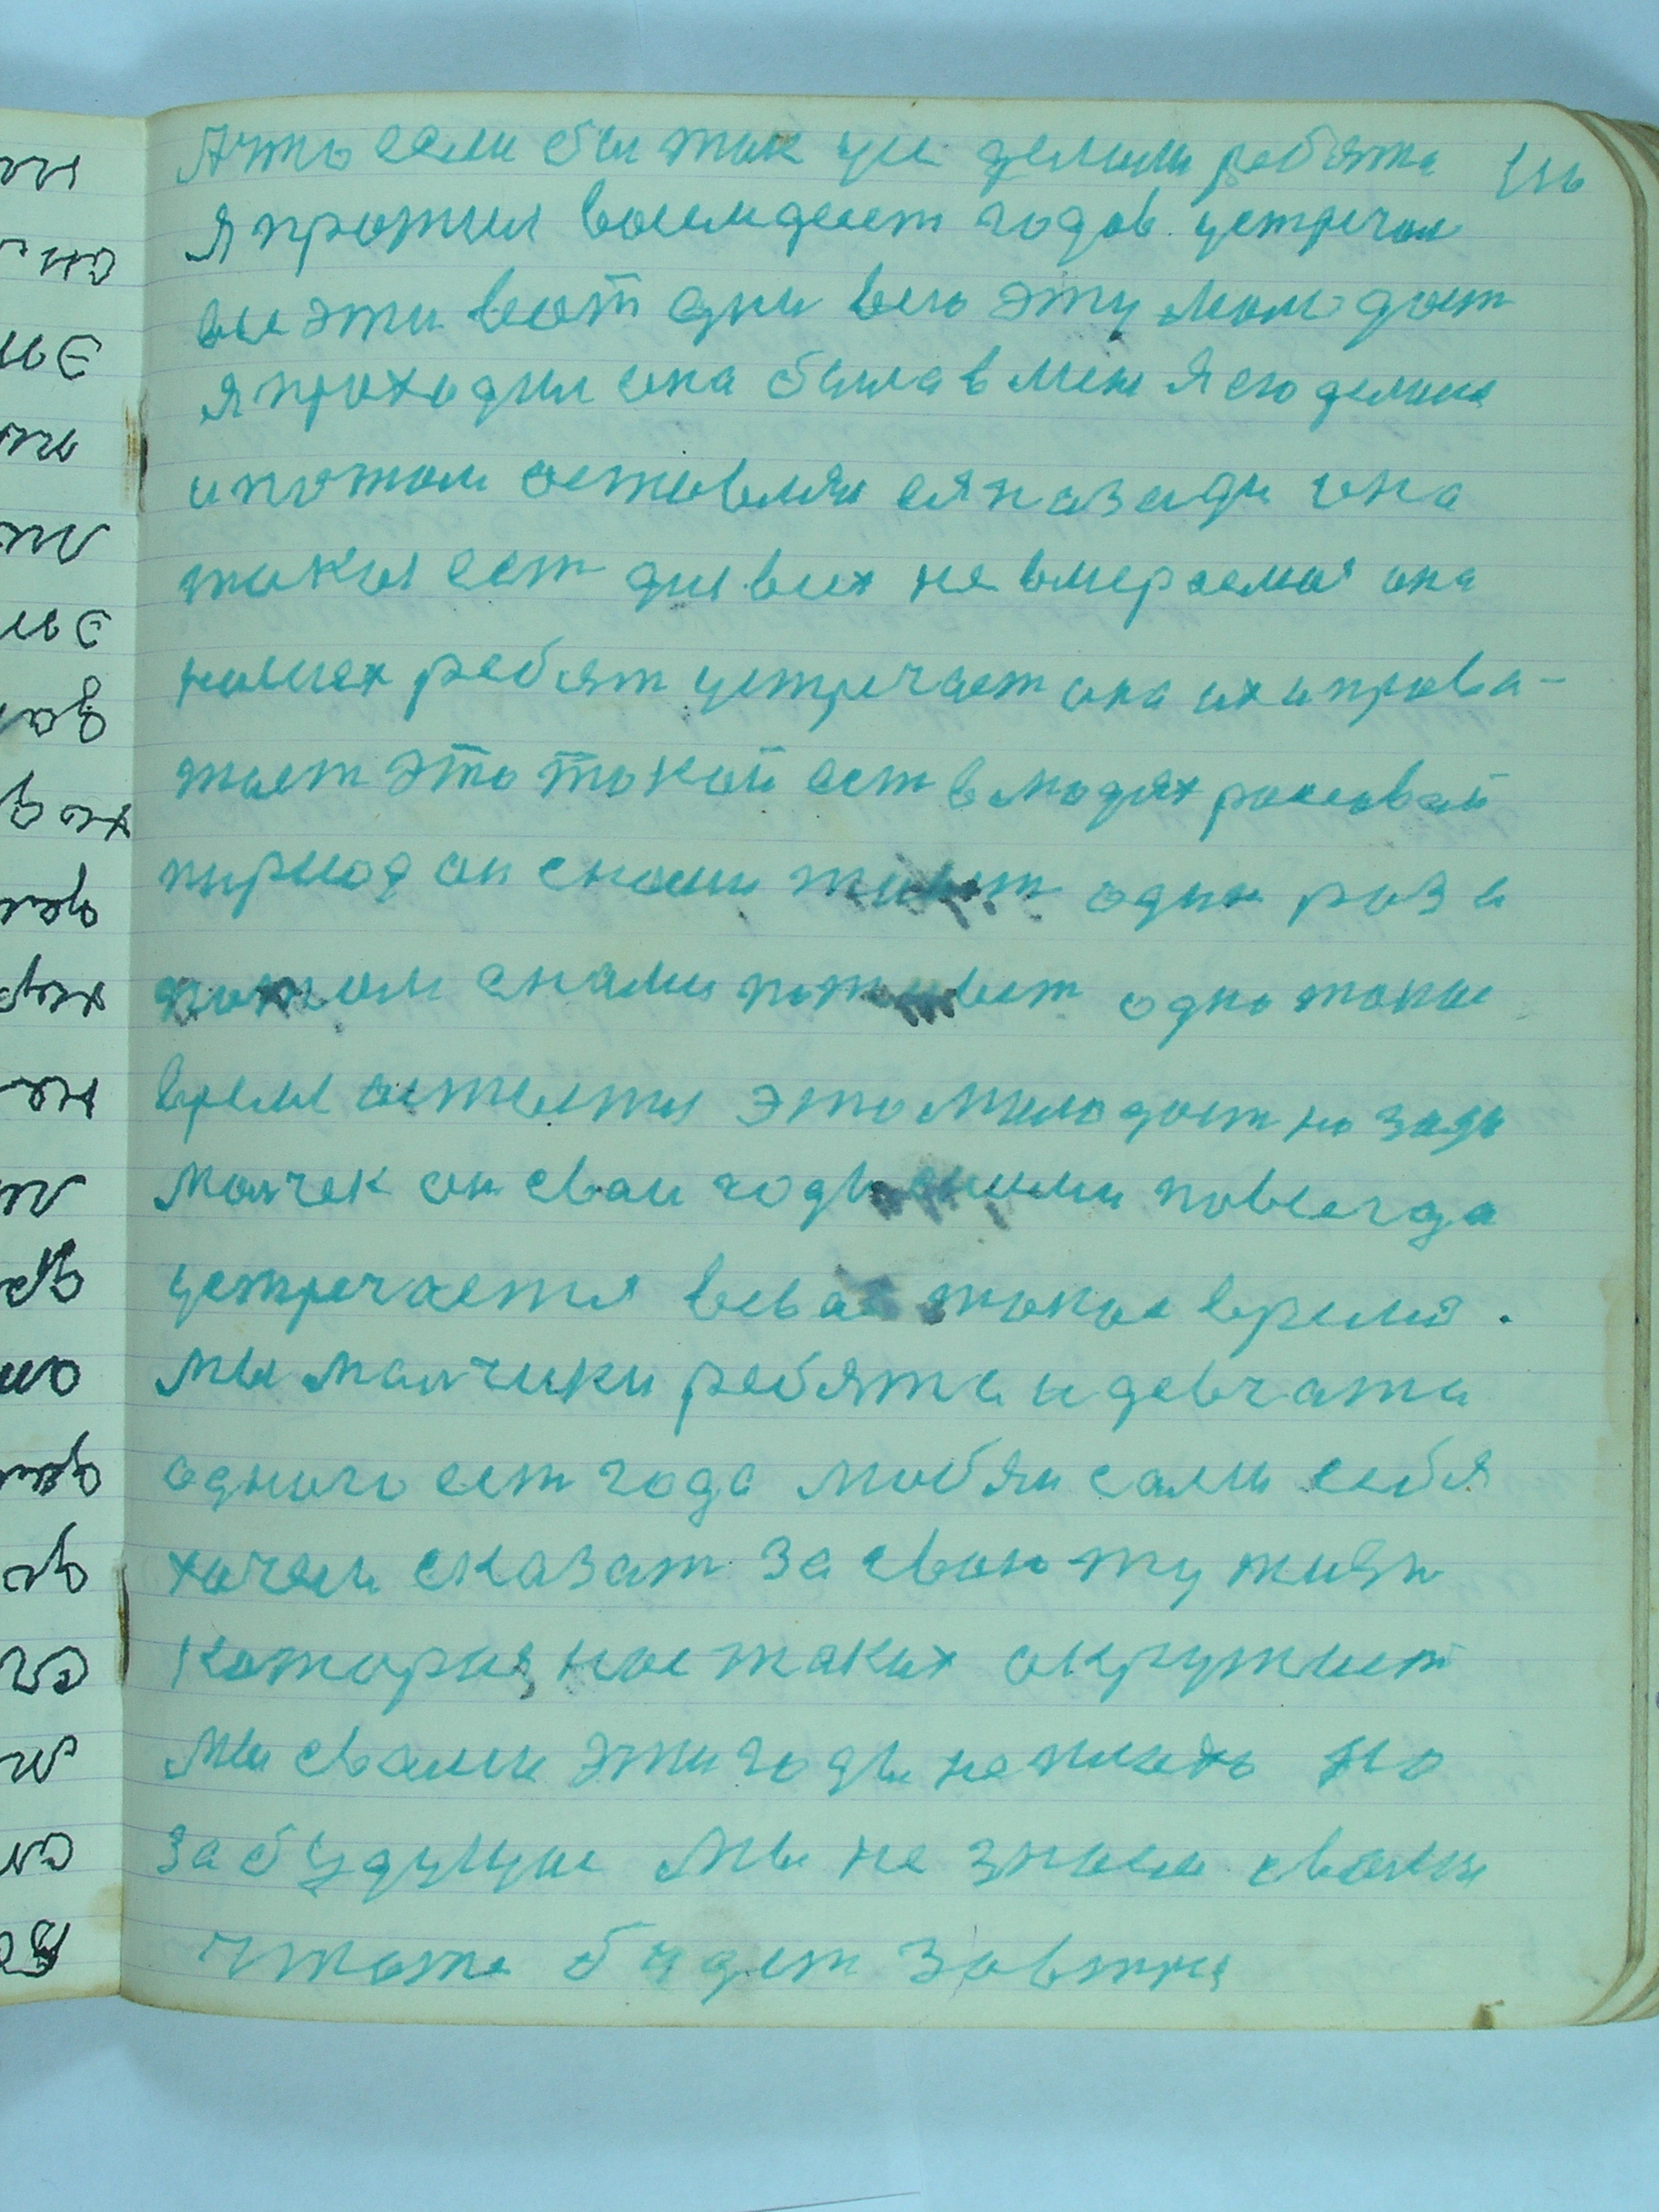 А что если бы так уси делали ребята
я прожил восемдесет годов устречал
все эти вот дни всю эту молодост
я проходил она была в мене я ею делил
и потом оставляи ея назади она
такия ест для всих не вмераемая она
наших ребят устречает она их и прова-
жает это такой ест в людях роковай
пириод он снами живет один раз а
потом снами поживет одно такое
время остается это молодост назади
малчек он сваи годы снами повсегда
устречается такое время.
мы малчики ребята и девчата
одного ест года любяи сами себя
хочем сказат за свою ту жизн
которыя нас таких окружает
мы сваими эти годы не плохо но
за будущие мы не знаем сваими
чтоже будет завтря